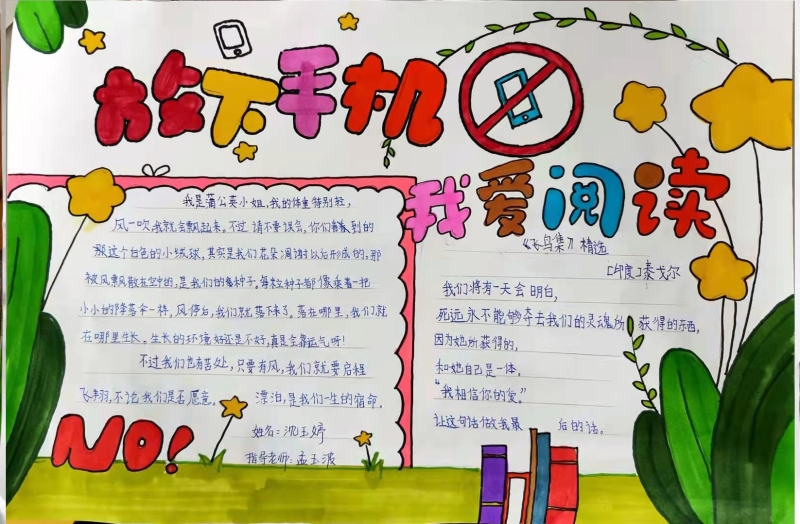 放下手机
我爱阅读
我是蒲公英小姐,我的体重特别轻,
风一吹我就会飘起来。不过 请不要误会,你们看到的
那这个白色的小绒球,其实是我们花朵凋谢以后形成的,那
被风飘散在空中的,是我们的种子,每粒种子都像乘着一把
小小的降落伞一样,风停后,我们就落下来了。落在哪里,我们就
在哪里生长。生长的环境好还是不好,真是全靠运气呀!
不过我们也有苦处,只要有风,我们就要启程
飞翔,不论我们是否愿意。 漂泊,是我们一生的宿命。
姓名:沈玉婷
指导老师:孟玉波
NO!
《飞鸟集》精选
[印度]泰戈尔
我们将有一天会明白,
死远永不能够夺去我们的灵魂所 获得的东西,
因为她所获得的,
和她自己是一体。
“我相信你的爱。”
让这句话做我最 后的话。